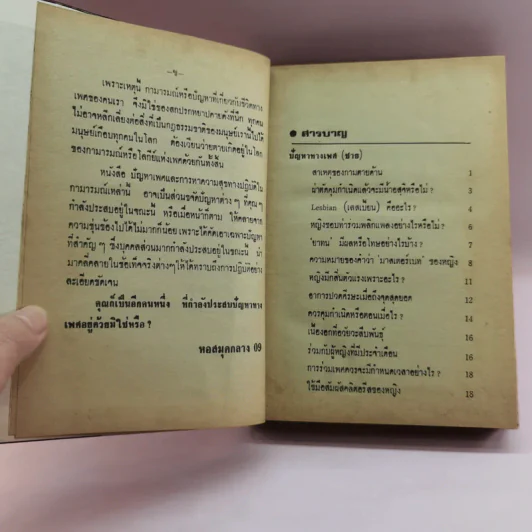 —ข—
เพราะเหตุนี้ กามารมณ์หรือปัญหาที่เกี่ยวกับชีวิตทาง
เพศของคนเรา จึงมิใช่ของสกปรกหยาบคายดังที่นึก ทุกคน
ไม่อาจหลีกเลี่ยงต่อสิ่งที่เป็นกฎธรรมชาติของมนุษย์เรานั้นไปได้
มนุษย์เกือบทุกคนในโลก ต้องเวียนว่ายตายเกิดอยู่ในโลก
ของกามารมณ์หรือโลกีย์แห่งเพศด้วยกันทั้งสิ้น
หนังสือ ปัญหาเพศและการหาความสุขทางปฏิบัติใน
กามารมณ์เหล่านี้ อาจเป็นส่วนขจัดปัญหาต่าง ๆ ที่คุณ ๆ
กำลังประสบอยู่ในขณะนี้ หรือเมื่อหนักก็ตาม ให้คลาย
ความขุ่นข้องไปได้ไม่มากก็น้อย เพราะได้คัดเอาเฉพาะปัญหา
ที่สำคัญ ๆ ซึ่งบุคคลส่วนมากกำลังประสบอยู่ในขณะนี้ นำ
มาคลี่คลายในข้อเท็จจริงต่างๆให้ได้ทราบถึงการปฏิบัติอย่าง
ละเอียดชัดเจน
คุณก็เป็นอีกคนหนึ่ง ที่กำลังประสบปัญหาทาง
เพศอยู่ด้วยมิใช่หรือ ?
หอสมุดกลาง 09
● สารบาญ
ปัญหาทางเพศ (ชาย)
สาเหตุของกามตายด้าน 1
ผ่าตัดคุมกำเนิดแล้วจะมีน้ำอสุจิหรือไม่ ? 3
Lesbian (เลสเบียน) คืออะไร ? 4
หญิงชอบท่าร่วมพลิกแพลงอย่างไรหรือไม่ ? 6
'ยาทน' มีผลหรือโทษอย่างไรบ้าง ? 7
ความหมายของคำว่า 'มาสเตอร์เบท' ของหญิง 8
หญิงมีกลิ่นตัวแรงเพราะอะไร ? 9
อาการปวดศีรษะเมื่อถึงจุดสุดยอด 12
ควรคุมกำเนิดหรือตอนเมื่อไร ? 14
เนื้องอกที่อวัยวะสืบพันธุ์ 16
ร่วมกับผู้หญิงที่มีประจำเดือน 16
การร่วมเพศควรจะมีกำหนดเวลาอย่างไร ? 18
ใช้มือสัมผัสคลิตอริสของหญิง 18